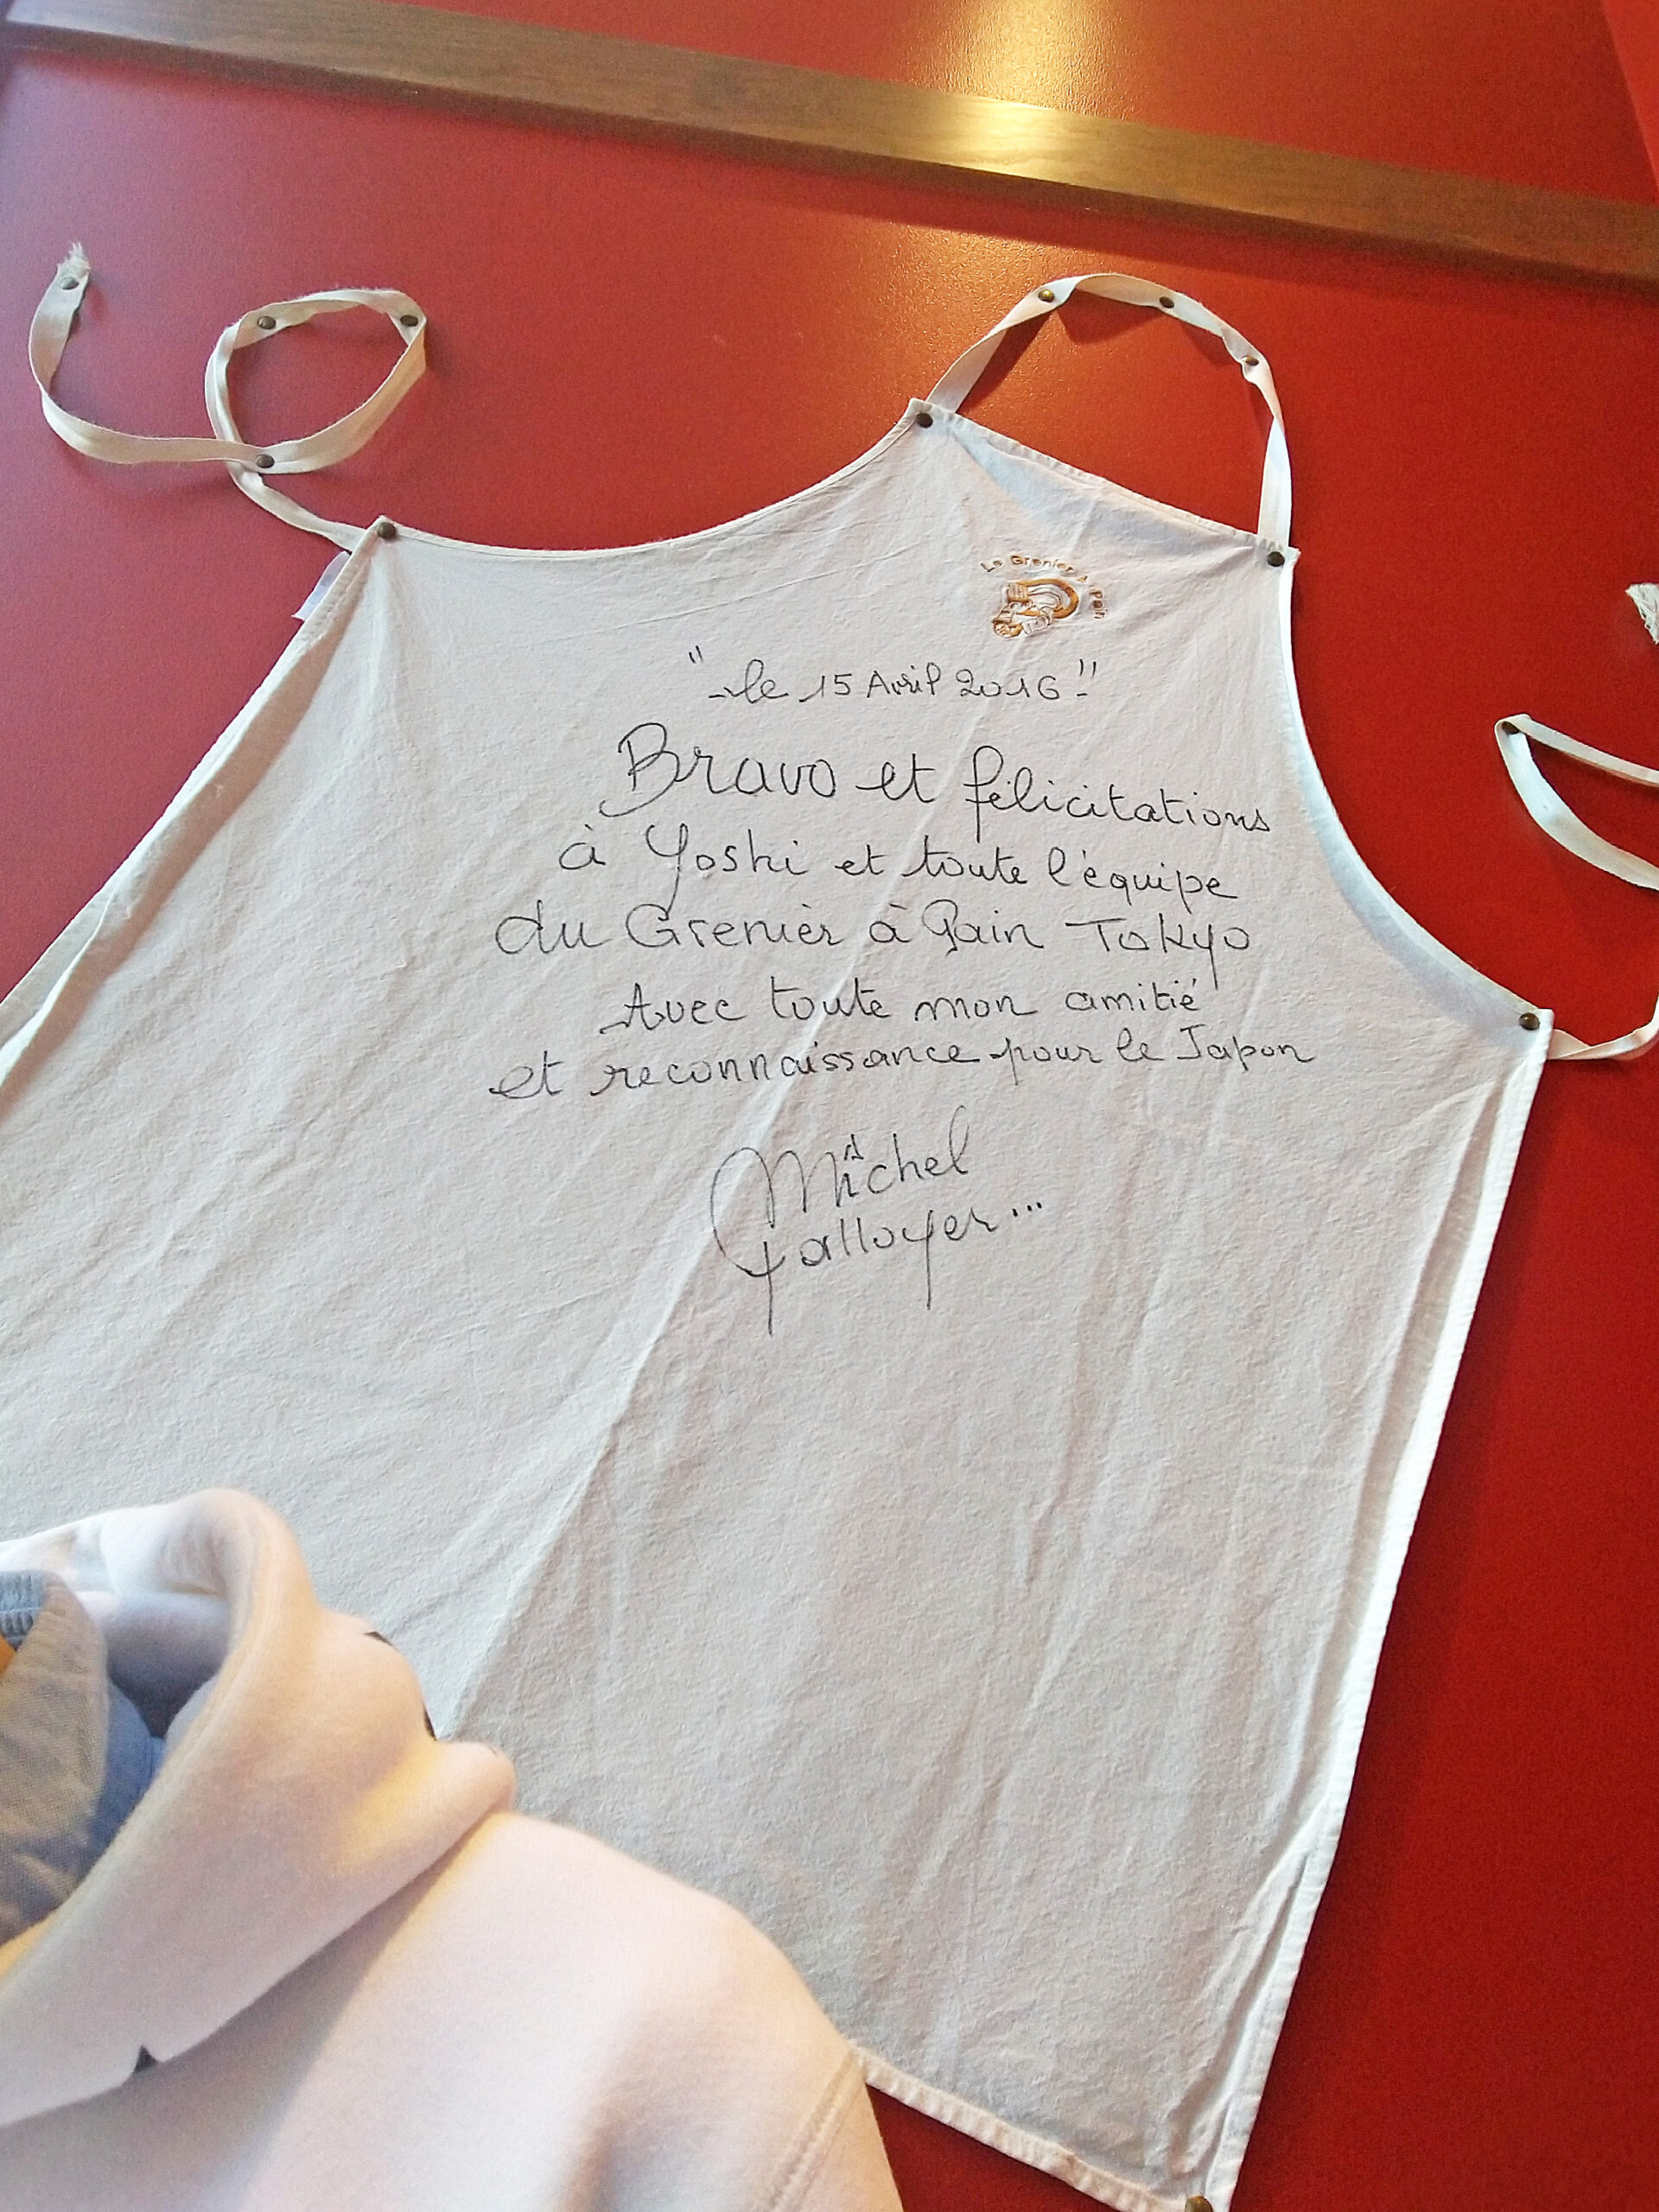 Le Grenier à Pain
"-le 15 Avril 2016-"
Bravo et félicitations
à Yoshi et toute l'équipe
du Grenier à Pain Tokyo
Avec toute mon amitié
et reconnaissance pour le Japon
Michel
Galloyer...